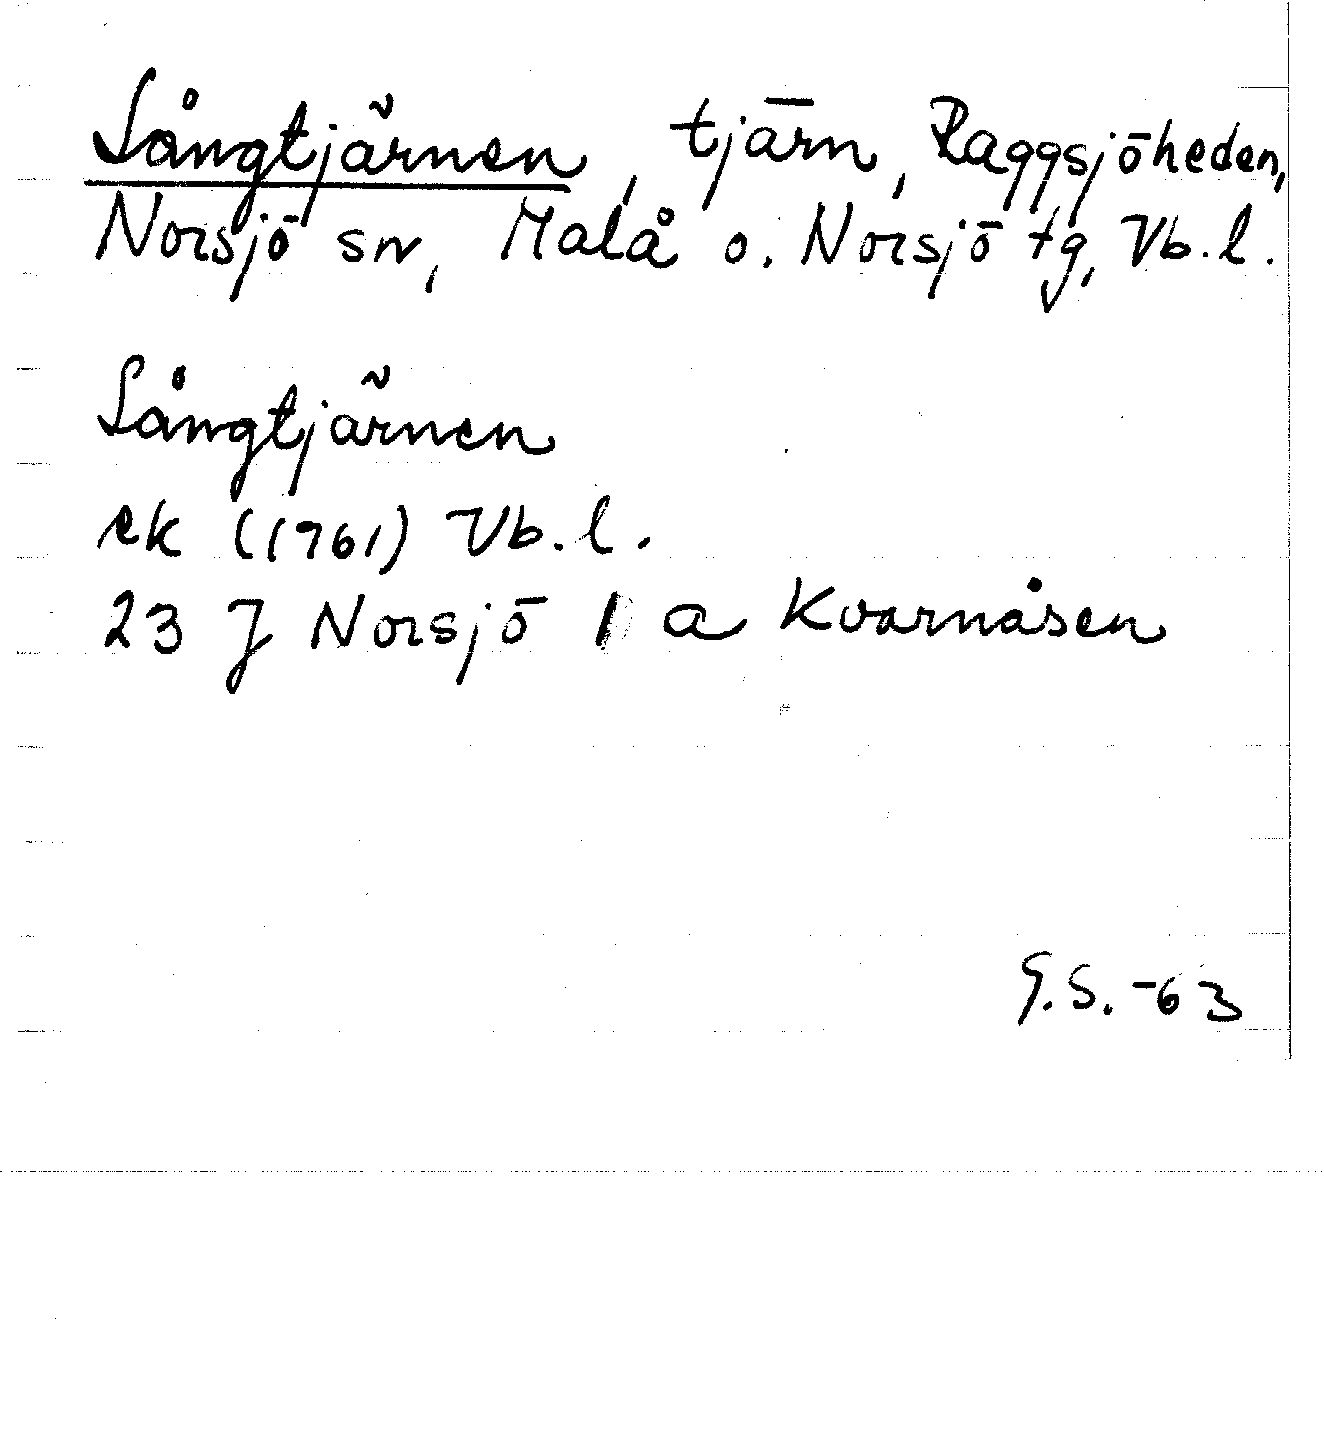 Långtjärnen, tjärn, Raggsjöheden,
Norsjö sn, Malå o. Norsjö tg, Vb.l.
Långtjärnen
ek (1961) Vb.l.
23 J Norsjö 1 a Kvarnåsen
G.S.-63